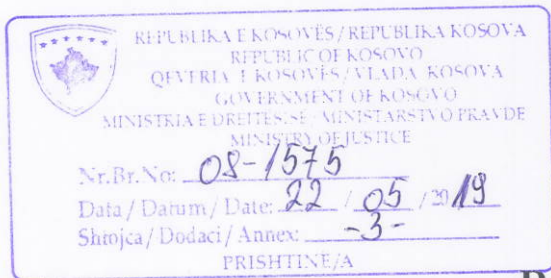 REPUBLIKA E KOSOVËS / REPUBLIKA KOSOVA
REPUBLIC OF KOSOVO
QEVERIA E KOSOVËS / VLADA KOSOVA
GOVERNMENT OF KOSOVO
MINISTRIA E DREJTËSISË / MINISTARSTVO PRAVDE
MINISTRY OF JUSTICE
Nr.Br.No: 08-1575
Data / Datum / Date: 22 / 05 / 2019
Shtojca / Dodaci / Annex: -3-
PRISHTINË/A